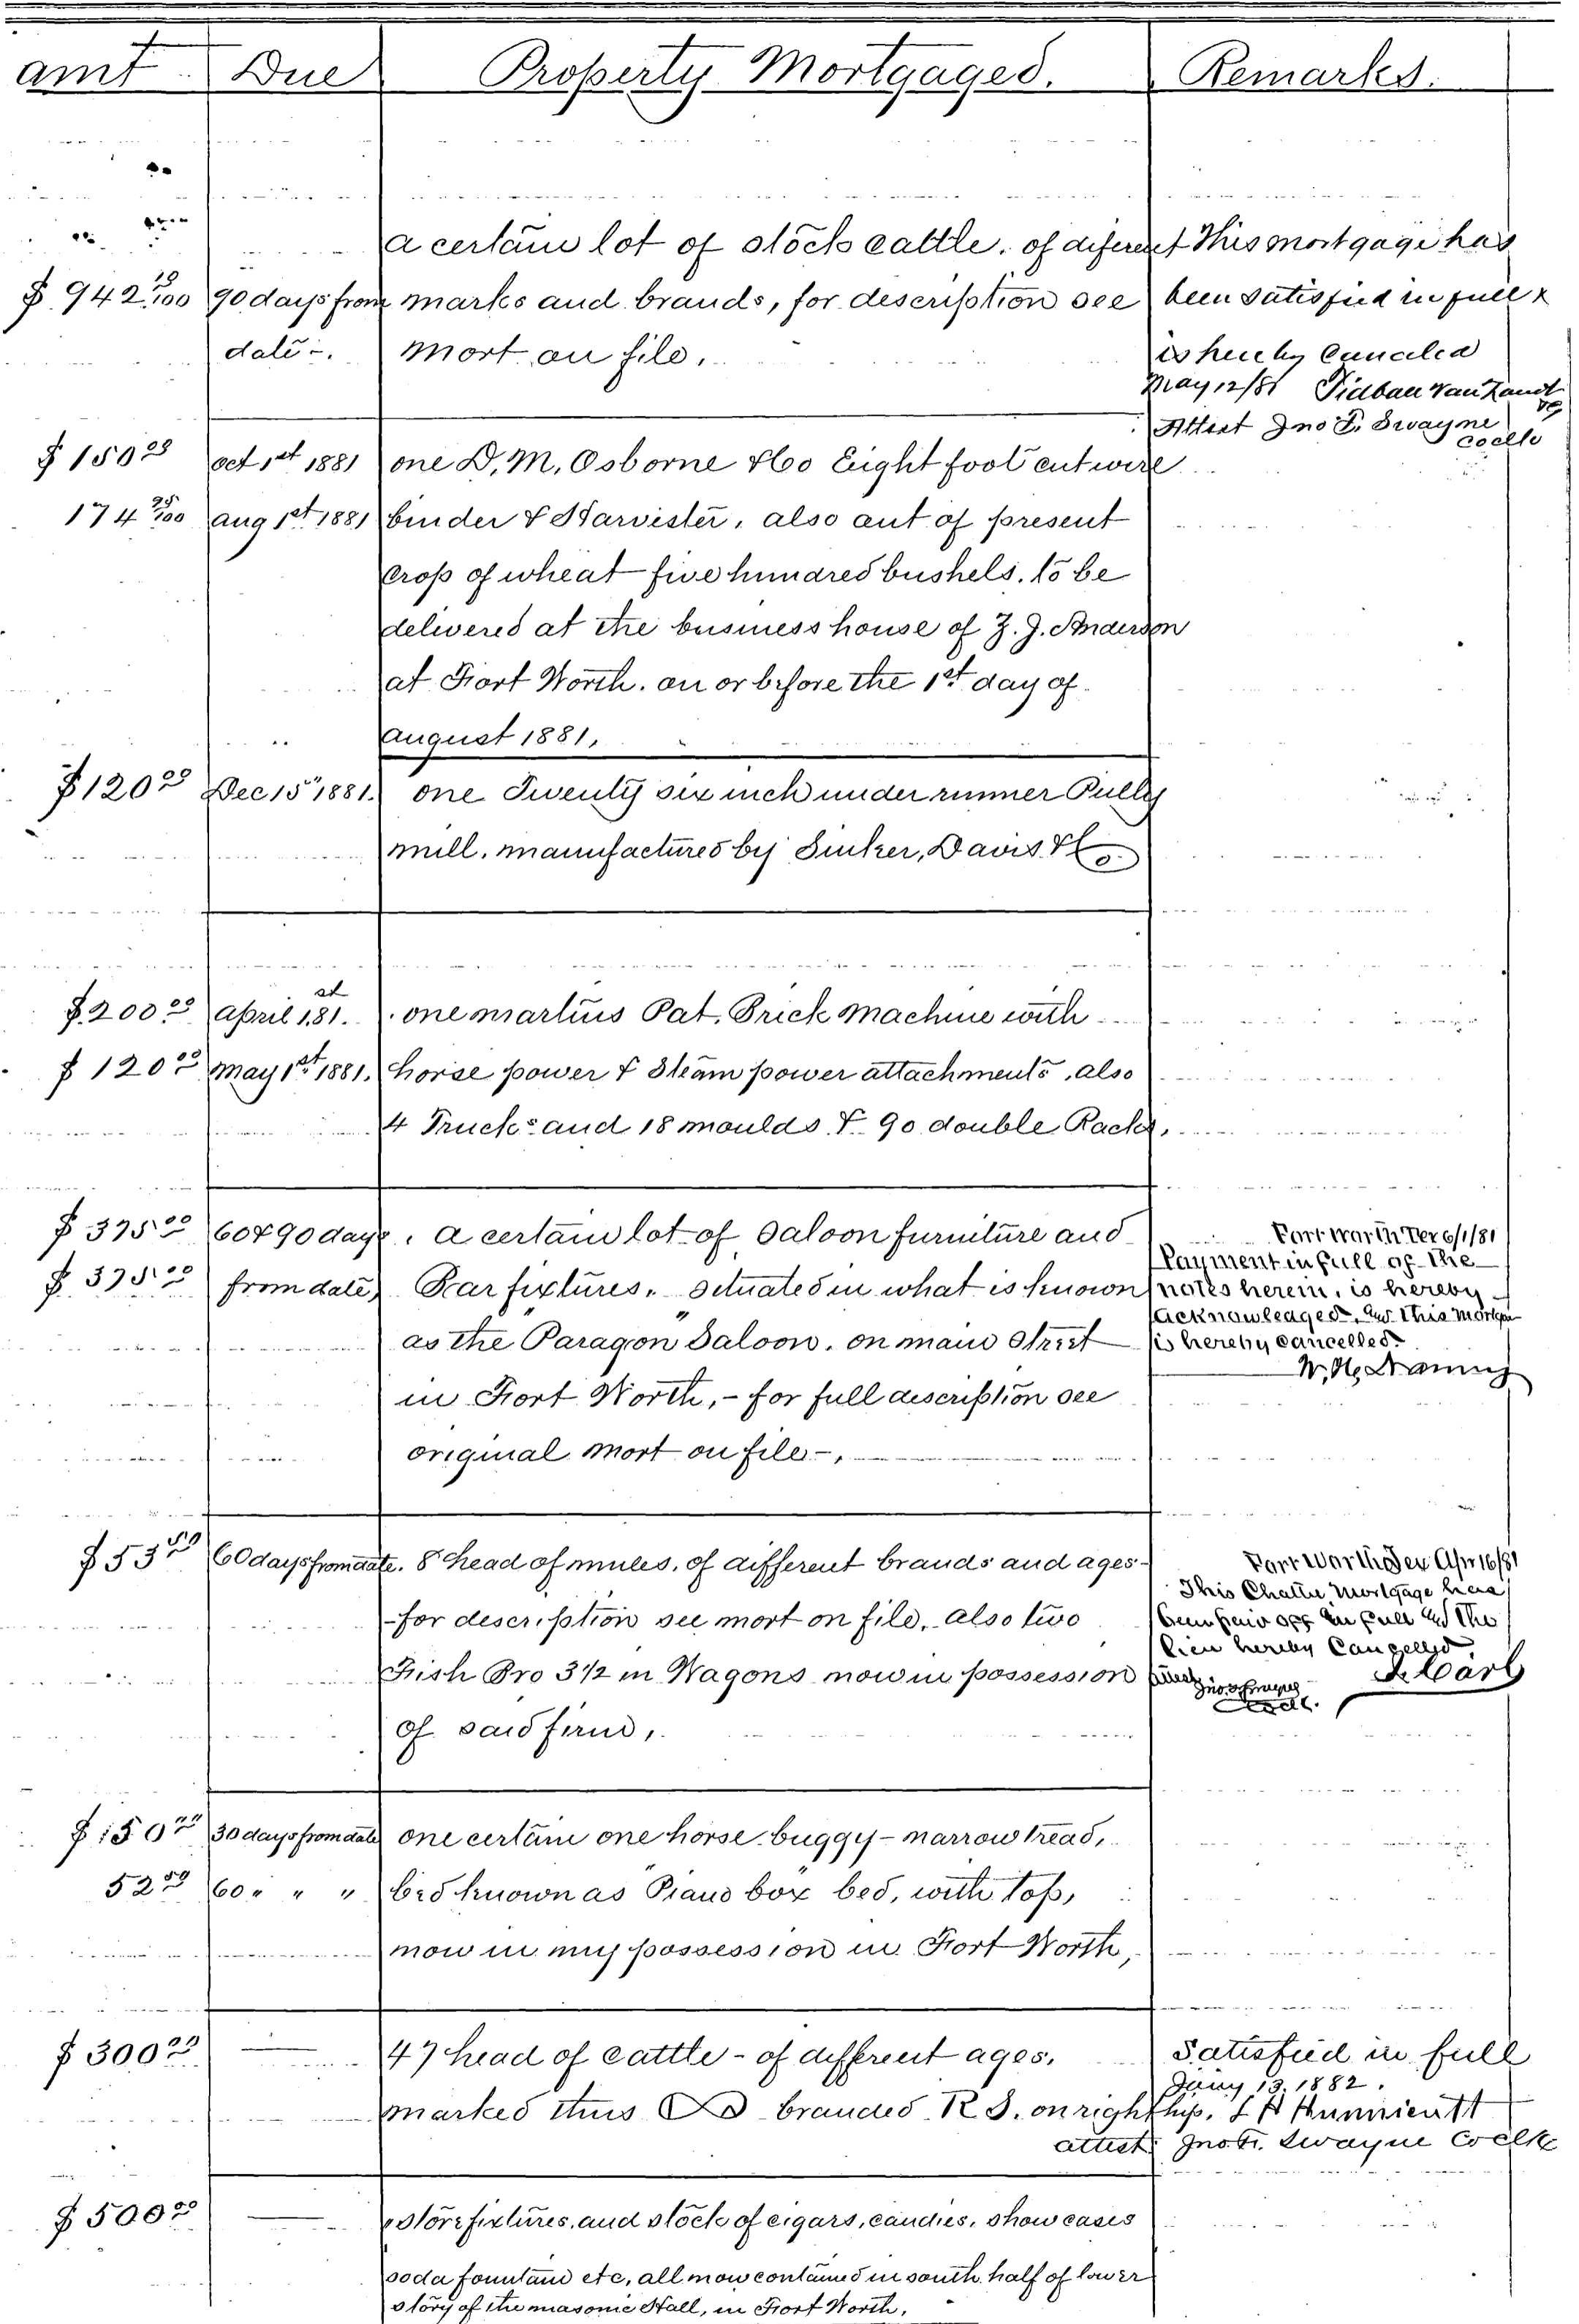 amt Due Property Mortgaged. Remarks.
a certain lot of stock cattle, of diferent This mortgage has
$ 942 10/100 90 days from marks and brands, for description see been satisfied in full &
date -. Mort on file, is hereby Canceled
May 12/81 Tidball Van Zandt
Attest Jno F. Swayne
CoClk
$ 150 00 Oct 1st 1881 one D, M, Osborne & Co Eight foot cut wire
174 25/100 aug 1st 1881 binder & Harvister, also out of present
Crop of wheat five hundred bushels, to be
delivered at the business house of Z. J. Anderson
at Fort Worth. on or before the 1st day of
August 1881,
$ 120 00 Dec 15 1881. one Twenty six inch under runner Pully
mill, manufactured by Sinker, Davis & Co
$ 200 00 April 1st, 81. one martins Pat, Brick Machine with
$ 120 00 May 1st 1881. horse power & Steam power attachments, also
4 Trucks and 18 moulds & 90 double Racks,
$ 375 00 60 & 90 days. a certain lot of Saloon furniture and
$ 375 00 from date, Bar fixtures, situated in what is known
as the Paragon Saloon, on main Street
in Fort Worth, - for full description see
original Mort on file -,
Fort Worth Tex 6/1/81
Payment in full of the
notes herein, is hereby
acknowledged, and this Mortgage
is hereby cancelled.
$ 53 50 60 days from date. 8 head of mules, of different brands and ages -
- for description see mort on file, also two
Fish Bro 3 1/2 in Wagons now in possession
of said firm,
Fort Worth Tex Apr 16/81
This Chattle Mortgage has
been paid off in full and the
lien hereby Cancelled
$ 150 00 30 days from date one certain one horse buggy - narrow tread,
52 50 60 " " " bed known as Piano box bed, with top,
now in my possession in Fort Worth,
$ 300 00 47 head of cattle - of different ages, Satisfied in full
Jany 13, 1882.
marked thus branded R S. on right hip.
attest Jno F. Swayne Co Clk
$ 500 00 Store fixtures, and stock of cigars, candies, show cases
soda fountain etc, all now contained in south half of lower
story of the masonic Hall, in Fort Worth,